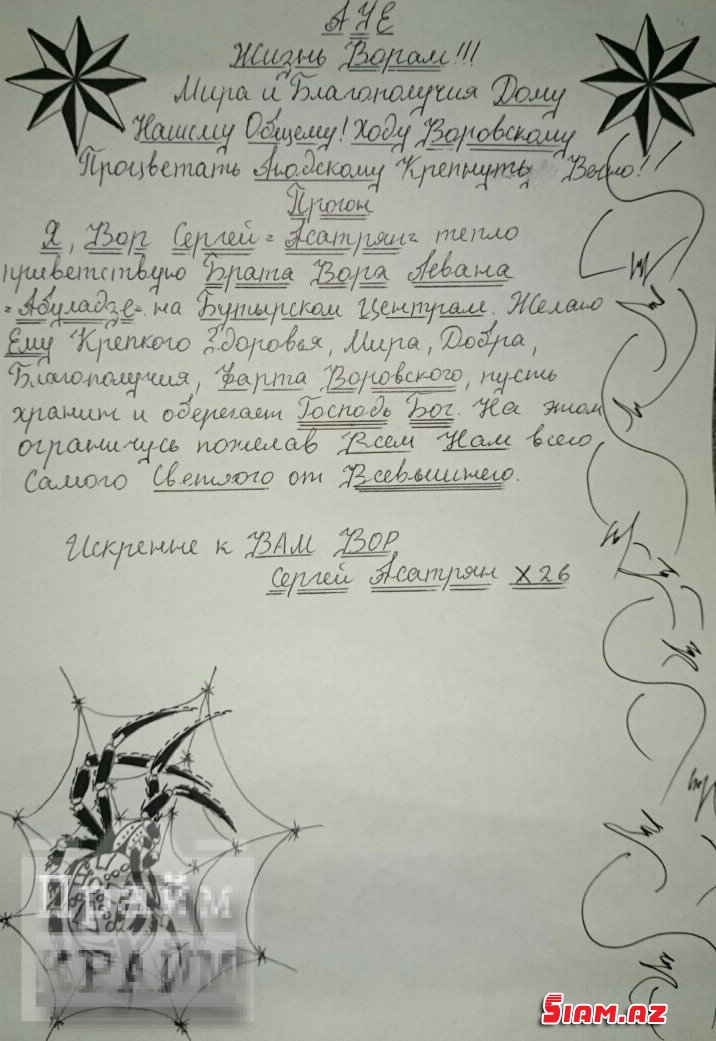 АУЕ
Жизнь Ворам!!!
Мира и Благополучия Дому
Нашему Общему! Ходу Воровскому
Процветать Людскому Крепнуть Вечно!!
Прогон
Я, Вор Сергей =Асатрян= тепло
приветствую Брата Вора Левана
=Абуладзе= на Бутырском Централе. Желаю
Ему Крепкого Здоровья, Мира, Добра,
Благополучия, Фарта Воровского, пусть
хранит и оберегает Господь Бог. На этом
ограничусь пожелав Всем Нам всего
самого Светлого от Всевышнего.
Искренне к ВАМ ВОР
Сергей Асатрян X26
Прайм
КРАЙМ
SIAM.AZ